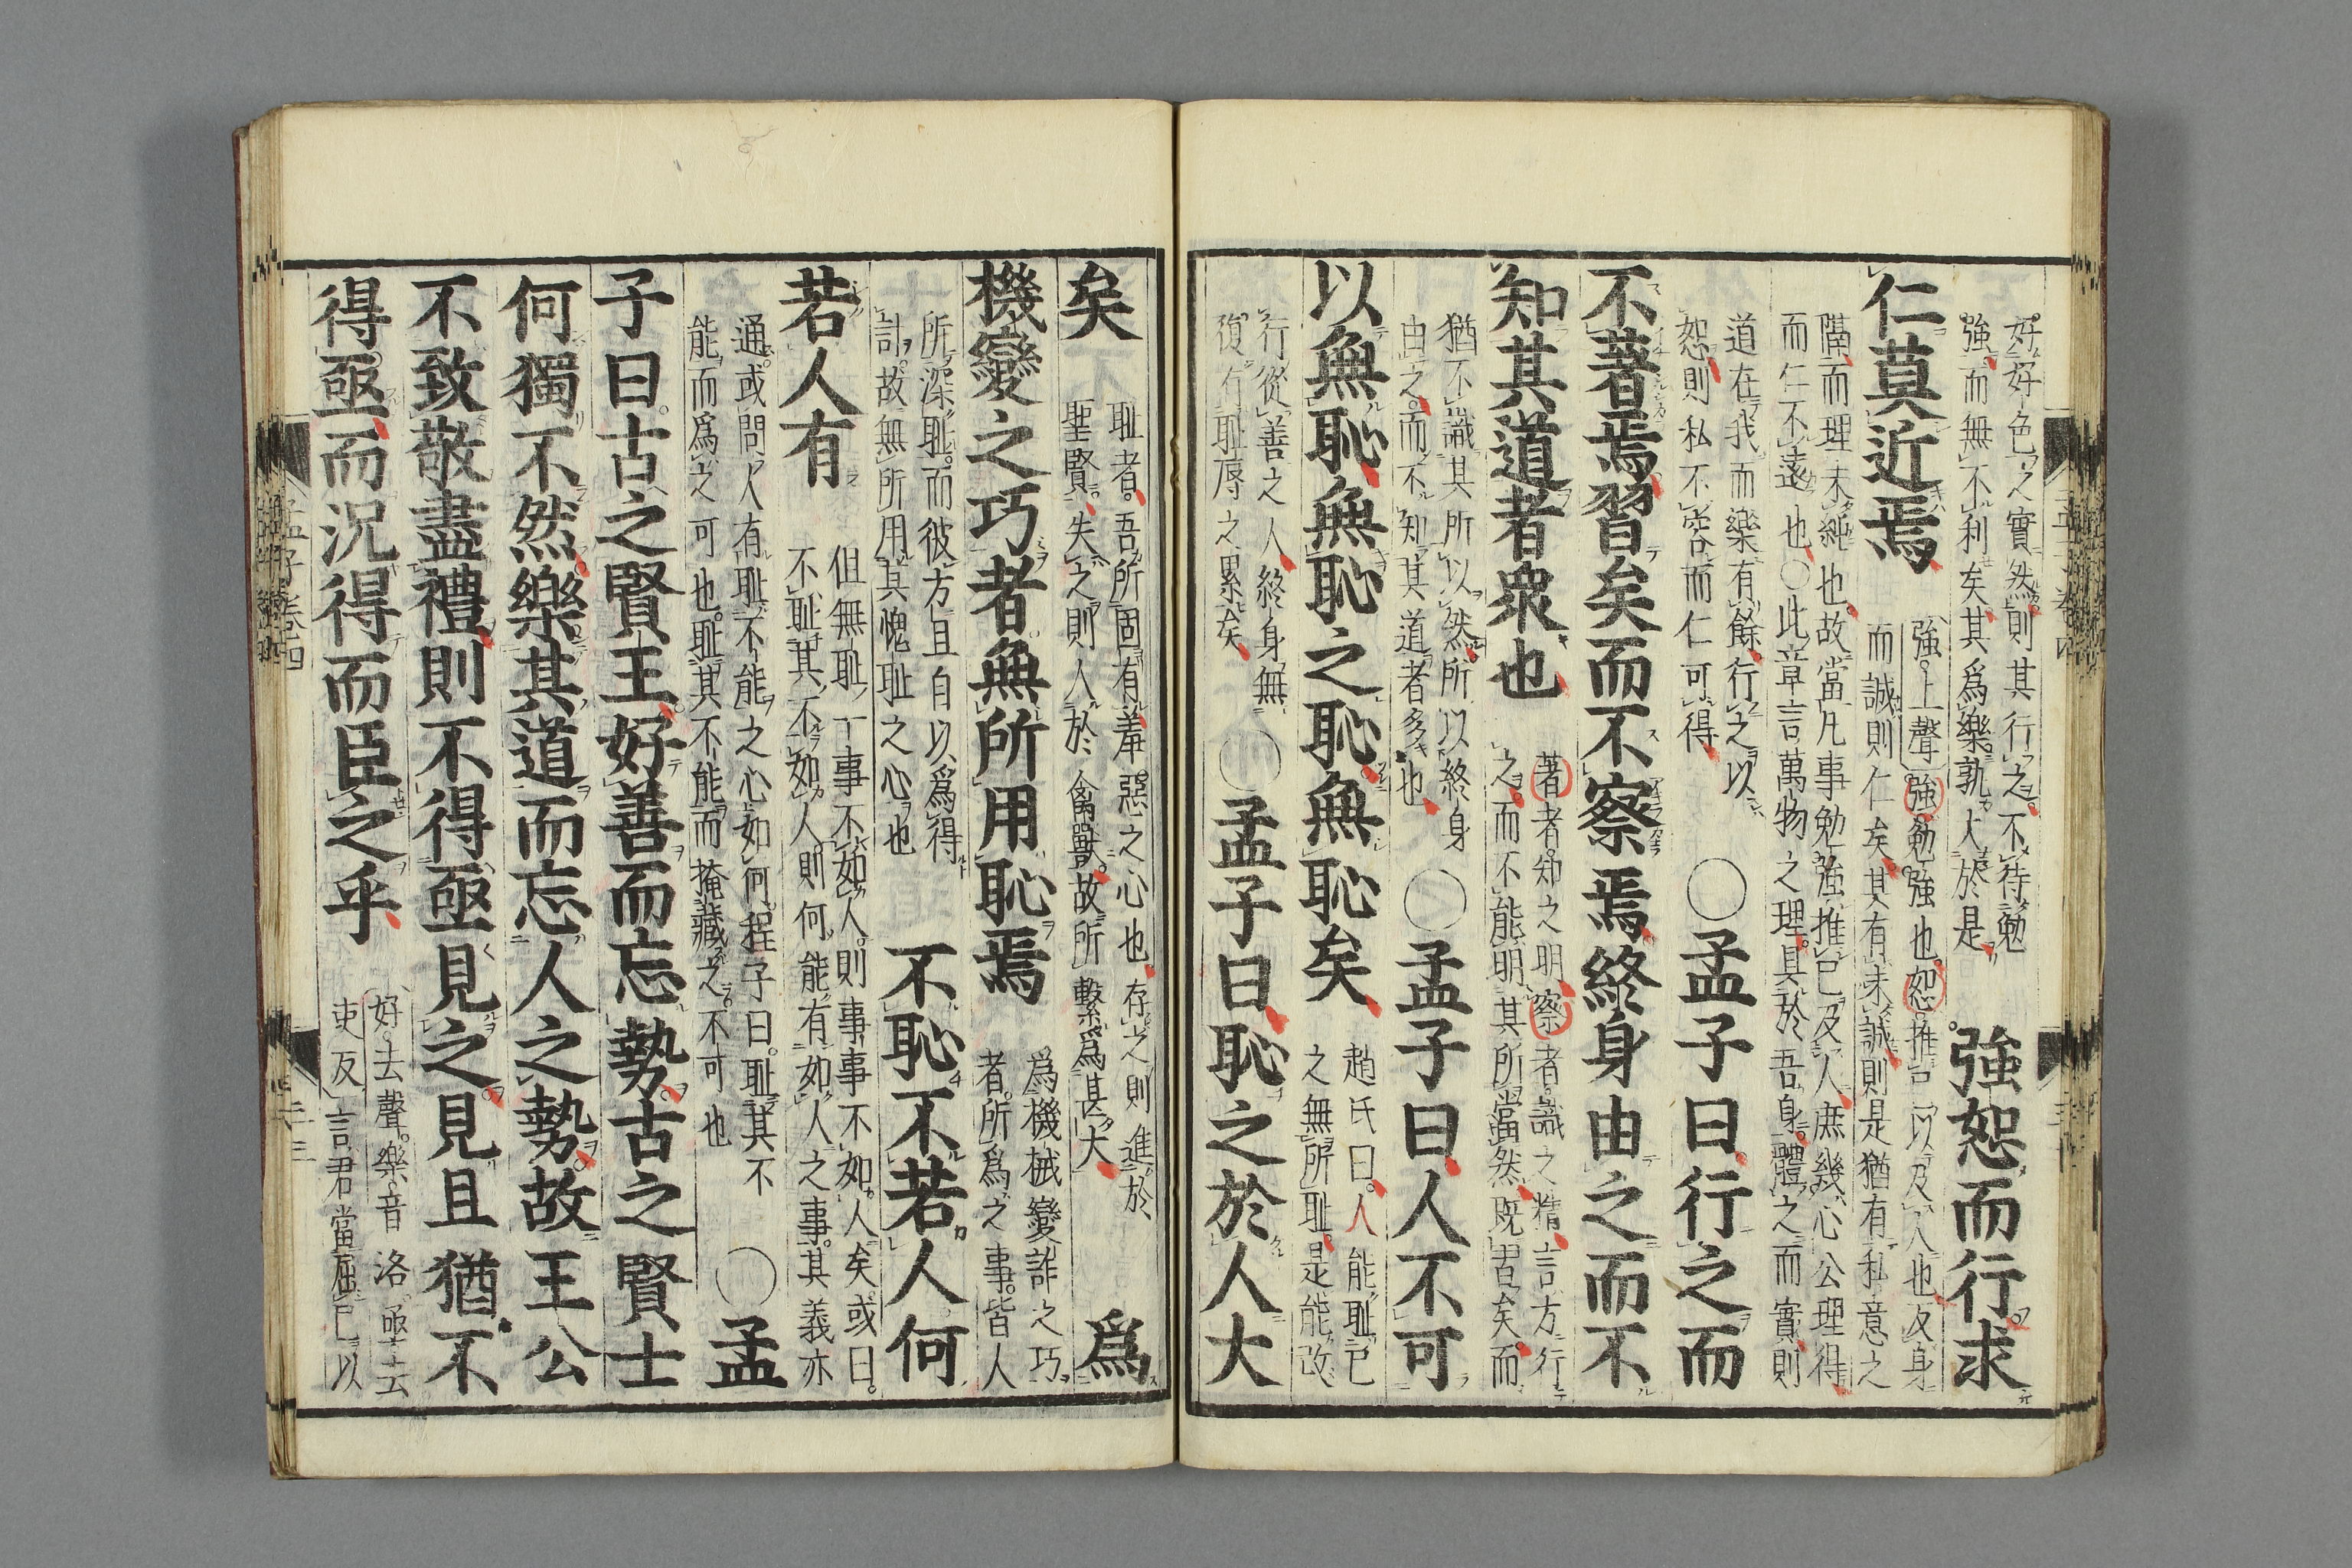 好好色之實然則其行之不待勉
強而無不利矣其爲樂孰大於是
強恕而行求
仁莫近焉
強上聲強勉強也恕推己以及人也反身
而誠則仁矣其有未誠則是猶有私意之
隔而理未純也故當凡事勉強推己及人庶幾心公理得
而仁不遠也○此章言萬物之理具於吾身體之而實則
道在我而樂有餘行之以
恕則私不容而仁可得
○孟子曰行之而
不著焉習矣而不察焉終身由之而不
知其道者衆也
著者知之明察者識之精言方行
之而不能明其所當然既習矣而
猶不識其所以然所以終身
由之而不知其道者多也
○孟子曰人不可
以無恥無恥之恥無恥矣
趙氏曰人能耻己
之無所耻是能改
行從善之人終身無
復有耻辱之累矣
○孟子曰恥之於人大
矣
耻者吾所固有羞惡之心也存之則進於
聖賢失之則人於禽獸故所繫爲甚大
爲
機變之巧者無所用恥焉
爲機械變詐之巧
者所爲之事皆人
所深耻而彼方且自以爲得
計故無所用其愧耻之心也
不恥不若人何
若人有
但無耻一事不如人則事事不如人矣或曰
不耻其不如人則何能有如人之事其義亦
通或問人有耻不能之心如何程子曰耻其不
能而爲之可也耻其不能而掩藏之不可也
○孟
子曰古之賢王好善而忘勢古之賢士
何獨不然樂其道而忘人之勢故王公
不致敬盡禮則不得亟見之見且猶不
得亟而況得而臣之乎
好去聲樂音洛亟去
吏反言君當屈己以
孟子卷四